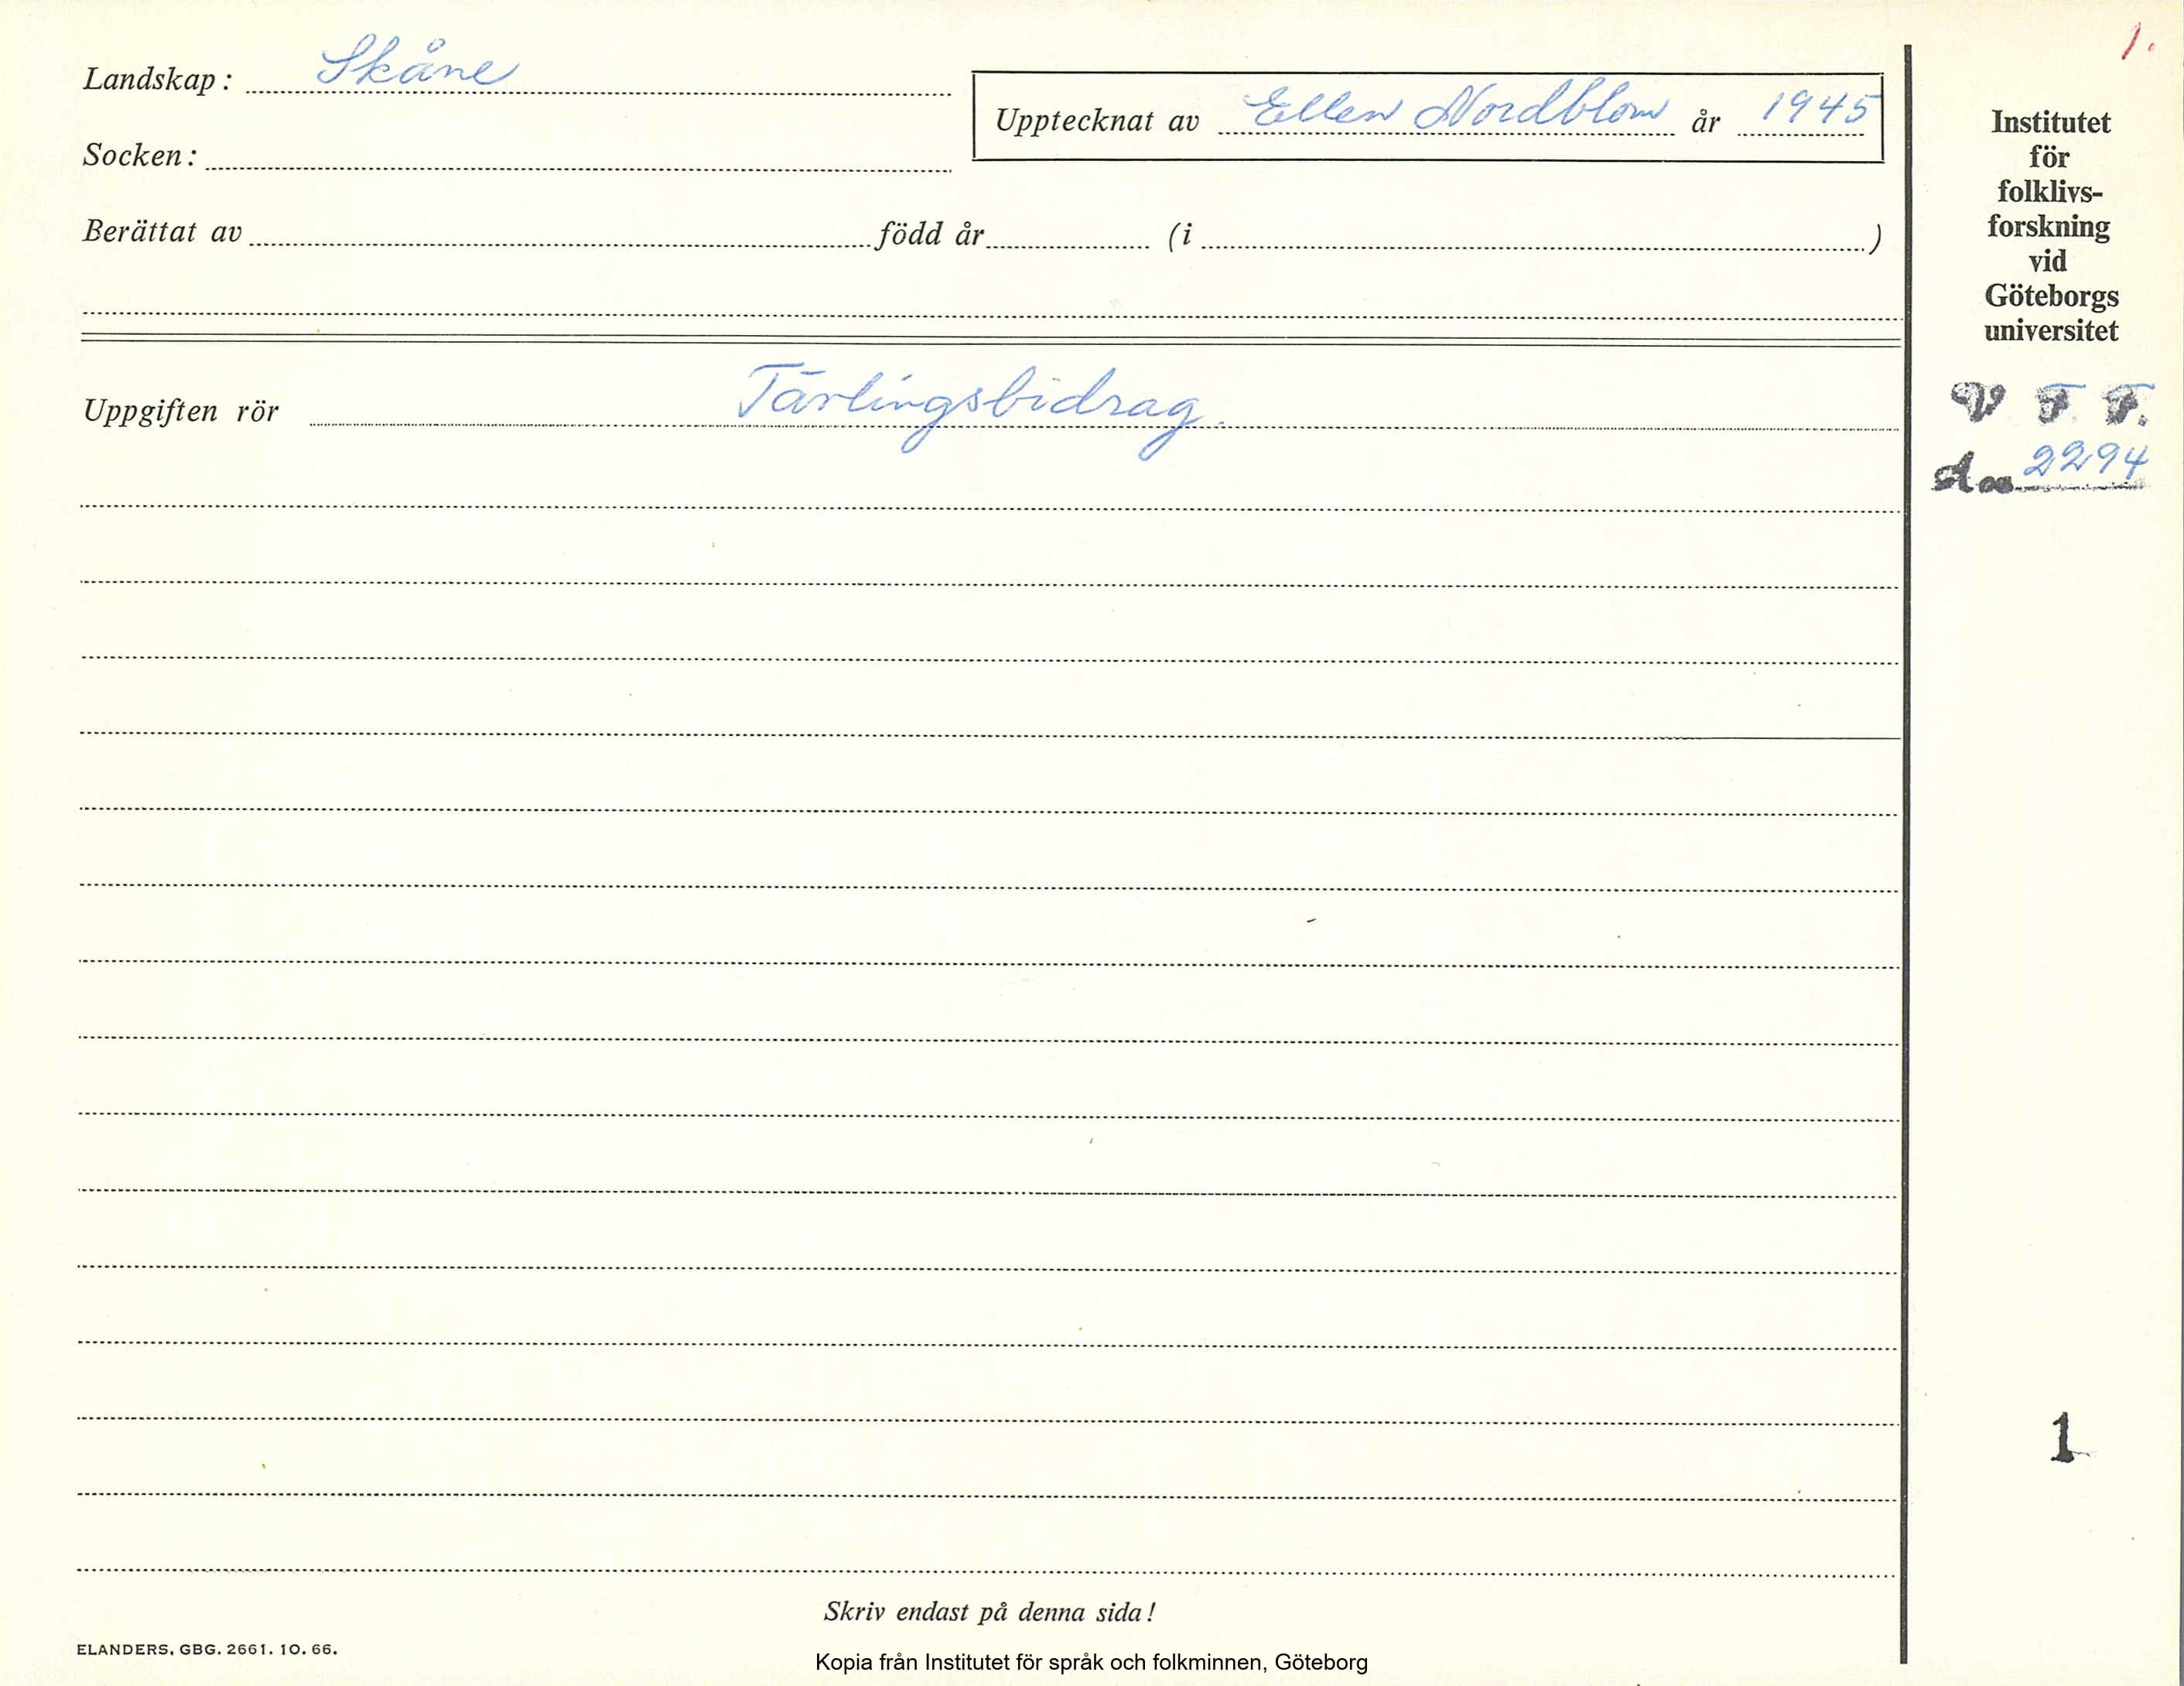 1.
Landskap: Skåne
Upptecknat av Ellen Nordblom år 1945
Socken:
Berättat av född år (i )
Uppgiften rör Tävlingsbidrag.
Institutet
för
folklivs-
forskning
vid
Göteborgs
universitet
V F F.
2294
1
Skriv endast på denna sida!
ELANDERS, GBG. 2661. 10. 66.
Kopia från Institutet för språk och folkminnen, Göteborg